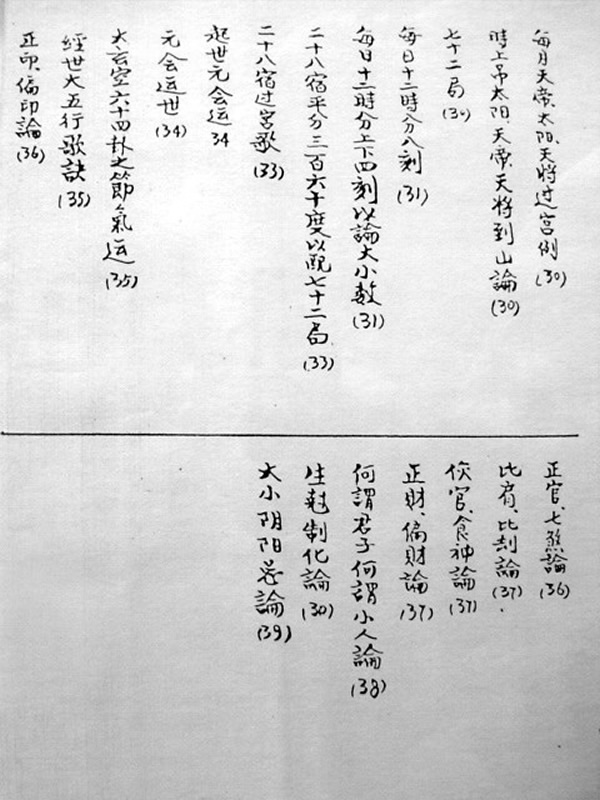 每月天帝、太阳、天将过宫例(30)
時上吊太阳、天帝、天将到山論(30)
七十二局(30)
每日十二時分八刻(31)
每日十二時分上下四刻以論大小数(31)
二十八宿平分三百六十度以配七十二局(33)
二十八宿过宫歌(33)
起世元会运34
元会运世(34)
大玄空六十四卦之節氣运(35)
經世大五行歌訣(35)
正印、偏印論(36)
正官、七煞論(36)
比肩、比刼論(37)
伤官、食神論(37)
正財、偏財論(37)
何謂君子何謂小人論(38)
生尅制化論(30)
大小阴阳忌論(39)